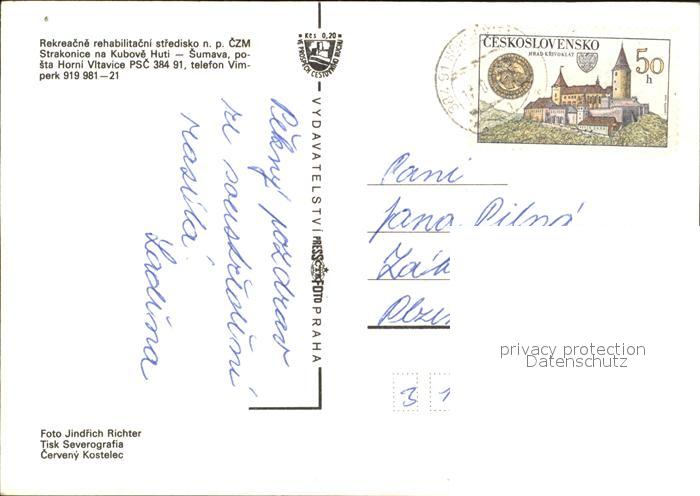 Rekreačně rehabilitační středisko n. p. ČZM
Strakonice na Kubově Huti — Šumava, po-
šta Horní Vltavice PSČ 384 91, telefon Vim-
perk 919 981—21
Kčs 0,20
VE PROSPĚCH CESTOVNÍHO RUCHU
ČESKOSLOVENSKO
HRAD KŘIVOKLÁT
50
h
384 91
Pěkný pozdrav
ze soustředění
zasílá
VYDAVATELSTVÍ PRESSFOTO PRAHA
Paní
Jana Pilná
Plze
3 1
privacy protection
Datenschutz
Foto Jindřich Richter
Tisk Severografia
Červený Kostelec
6